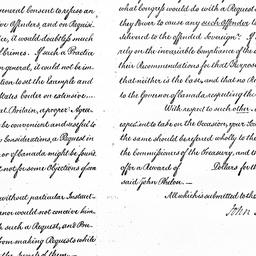 neral Consent to refuse an
ve Offenders, and on Requisi
ice, it would doubtless much
l Crimes. If such a Practice
n general, it could not be im-
tion to set the Example and
States border on extensive
at Britain, a proper Agree-
be convenient and useful to
Considerations, a Request in
or of Canada might be found
it not for some Objections from
without particular Instruct
nor would not conceive him
h such a Request, and Pru
from making Requests while
what Congress would do with a Request
they Power to cause any such Offender to
delivered to the offended Sovereign? If
rely on the invariable Compliance of the
their Recommendations for that Purpose
that neither is the Case, and that no Re
to the Governor of Canada respecting the
With respect to such other
expedient to take on the Occasion, your
the same should be referred wholly to the
the Commissioners of the Treasury, and
offer a Reward of Dollars for th
said John Phelon.
All which is submitted to the
John